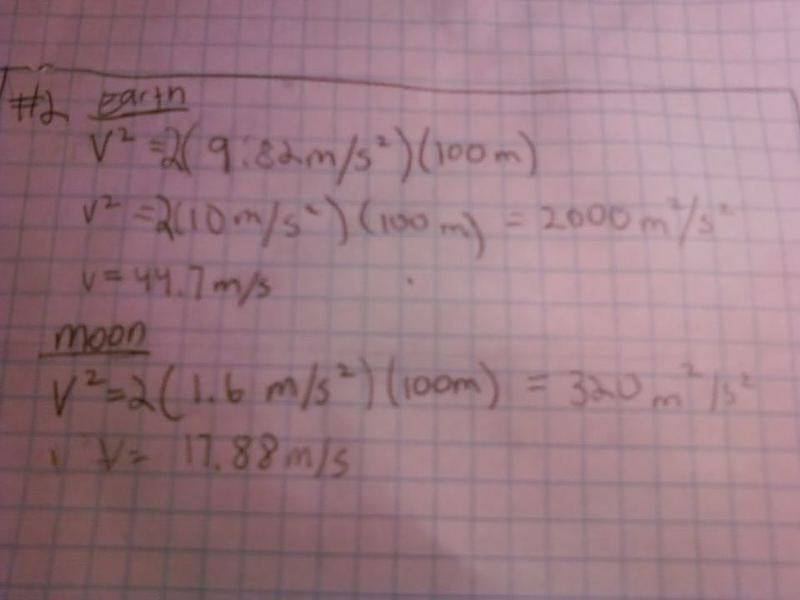 #2 earth
V² = 2(9.82m/s²)(100m)
V² = 2(10m/s²)(100m) = 2000m²/s²
V = 44.7m/s
moon
V² = 2(1.6 m/s²)(100m) = 320m²/s²
V = 17.88m/s